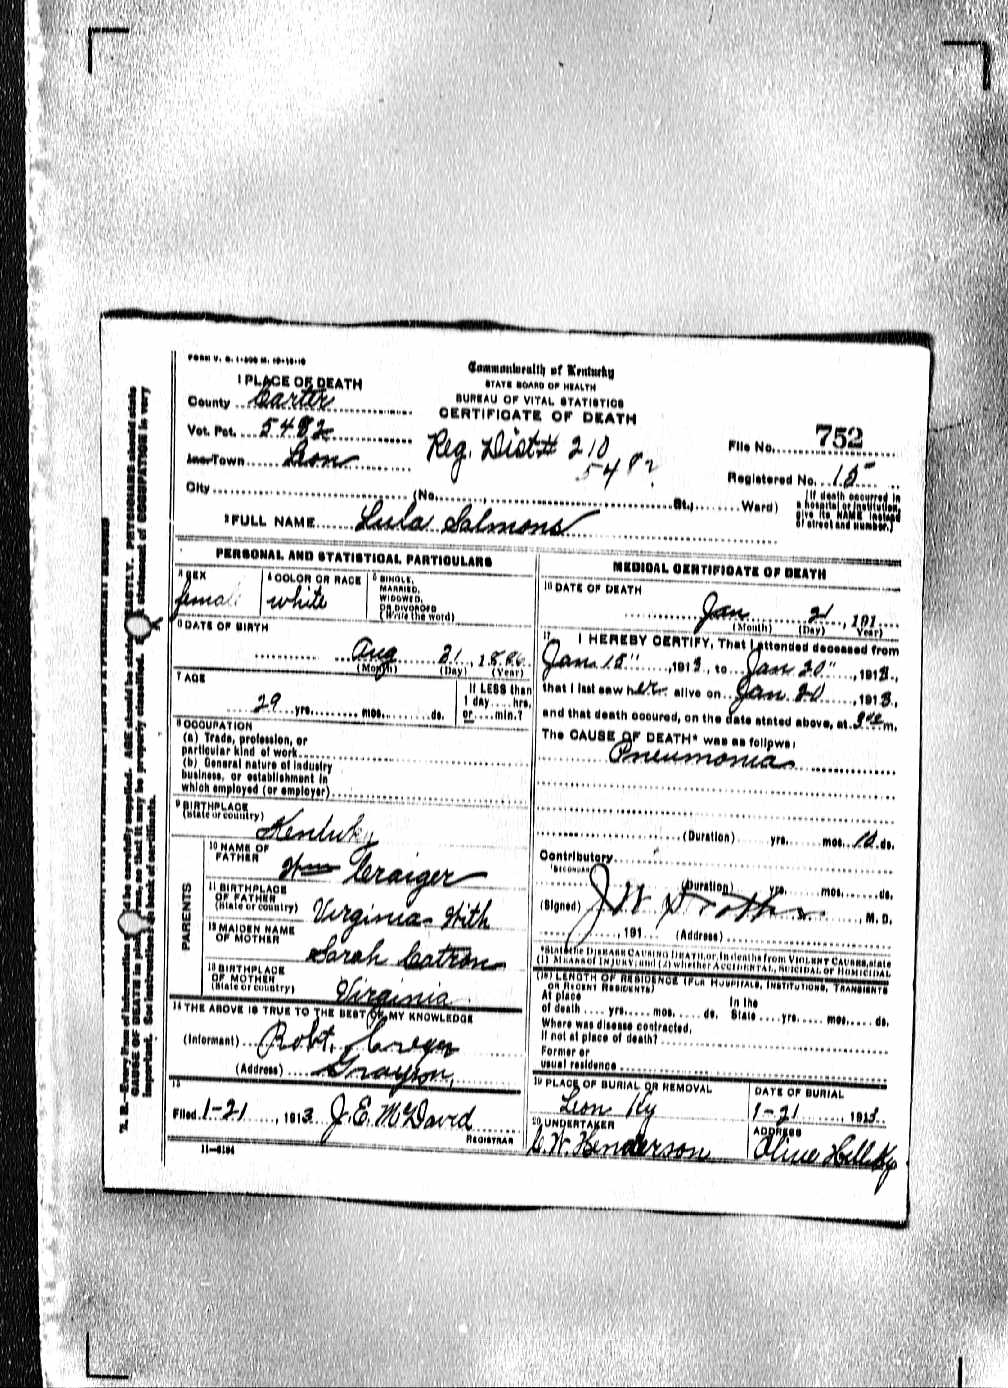 FORM V. S. 1-500 M. 10-10-10
Commonwealth of Kentucky
STATE BOARD OF HEALTH
BUREAU OF VITAL STATISTICS
CERTIFICATE OF DEATH
1 PLACE OF DEATH
County Carter
Vot. Pct. 5482
Inc. Town Leon
City (No. , St., Ward)
Reg. Dist # 210
5482
File No. 752
Registered No. 15
(If death occurred in
a hospital or institution,
give its NAME instead
of street and number.)
2 FULL NAME Lula Salmons
PERSONAL AND STATISTICAL PARTICULARS
3 SEX female
4 COLOR OR RACE white
5 SINGLE,
MARRIED,
WIDOWED,
OR DIVORCED
(Write the word)
6 DATE OF BIRTH
Aug 21, 18
(Month) (Day) (Year)
7 AGE
29 yrs. mos. ds.
If LESS than
1 day hrs.
or min.?
8 OCCUPATION
(a) Trade, profession, or
particular kind of work
(b) General nature of industry
business, or establishment in
which employed (or employer)
9 BIRTHPLACE
(State or country)
Kentuky
PARENTS
10 NAME OF
FATHER
Wm Craiger
11 BIRTHPLACE
OF FATHER
(State or country)
Virginia With
12 MAIDEN NAME
OF MOTHER
Sarah Catron
13 BIRTHPLACE
OF MOTHER
(State or country)
Virginia
14 THE ABOVE IS TRUE TO THE BEST OF MY KNOWLEDGE
(Informant) Robt. Creger
(Address) Grayson,
15
Filed 1-21, 1913 J. E. McDavid
REGISTRAR
11-6184
MEDICAL CERTIFICATE OF DEATH
16 DATE OF DEATH
Jan 21, 191
(Month) (Day) Year)
17 I HEREBY CERTIFY, That I attended deceased from
Jan 15", 1913, to Jan 20", 1913,
that I last saw her alive on Jan 20, 1913,
and that death occured, on the date stated above, at m.
The CAUSE OF DEATH* was as follows:
Pneumonia
(Duration) yrs. mos. 10 ds.
Contributory
(SECONDARY)
(Duration) yrs. mos. ds.
(Signed) J W M. D.
, 191 (Address)
*State the DISEASE CAUSING DEATH, or, in deaths from VIOLENT CAUSES, state
(1) MEANS OF INJURY; and (2) whether ACCIDENTAL, SUICIDAL OR HOMICIDAL
(18) LENGTH OF RESIDENCE (FOR HOSPITALS, INSTITUTIONS, TRANSIENTS
OR RECENT RESIDENTS)
At place In the
of death yrs. mos. ds. State yrs. mos. ds.
Where was disease contracted,
if not at place of death?
Former or
usual residence
19 PLACE OF BURIAL OR REMOVAL
Leon Ky
DATE OF BURIAL
1-21 1913
20 UNDERTAKER
C. W. Henderson
ADDRESS
Olive Hill Ky